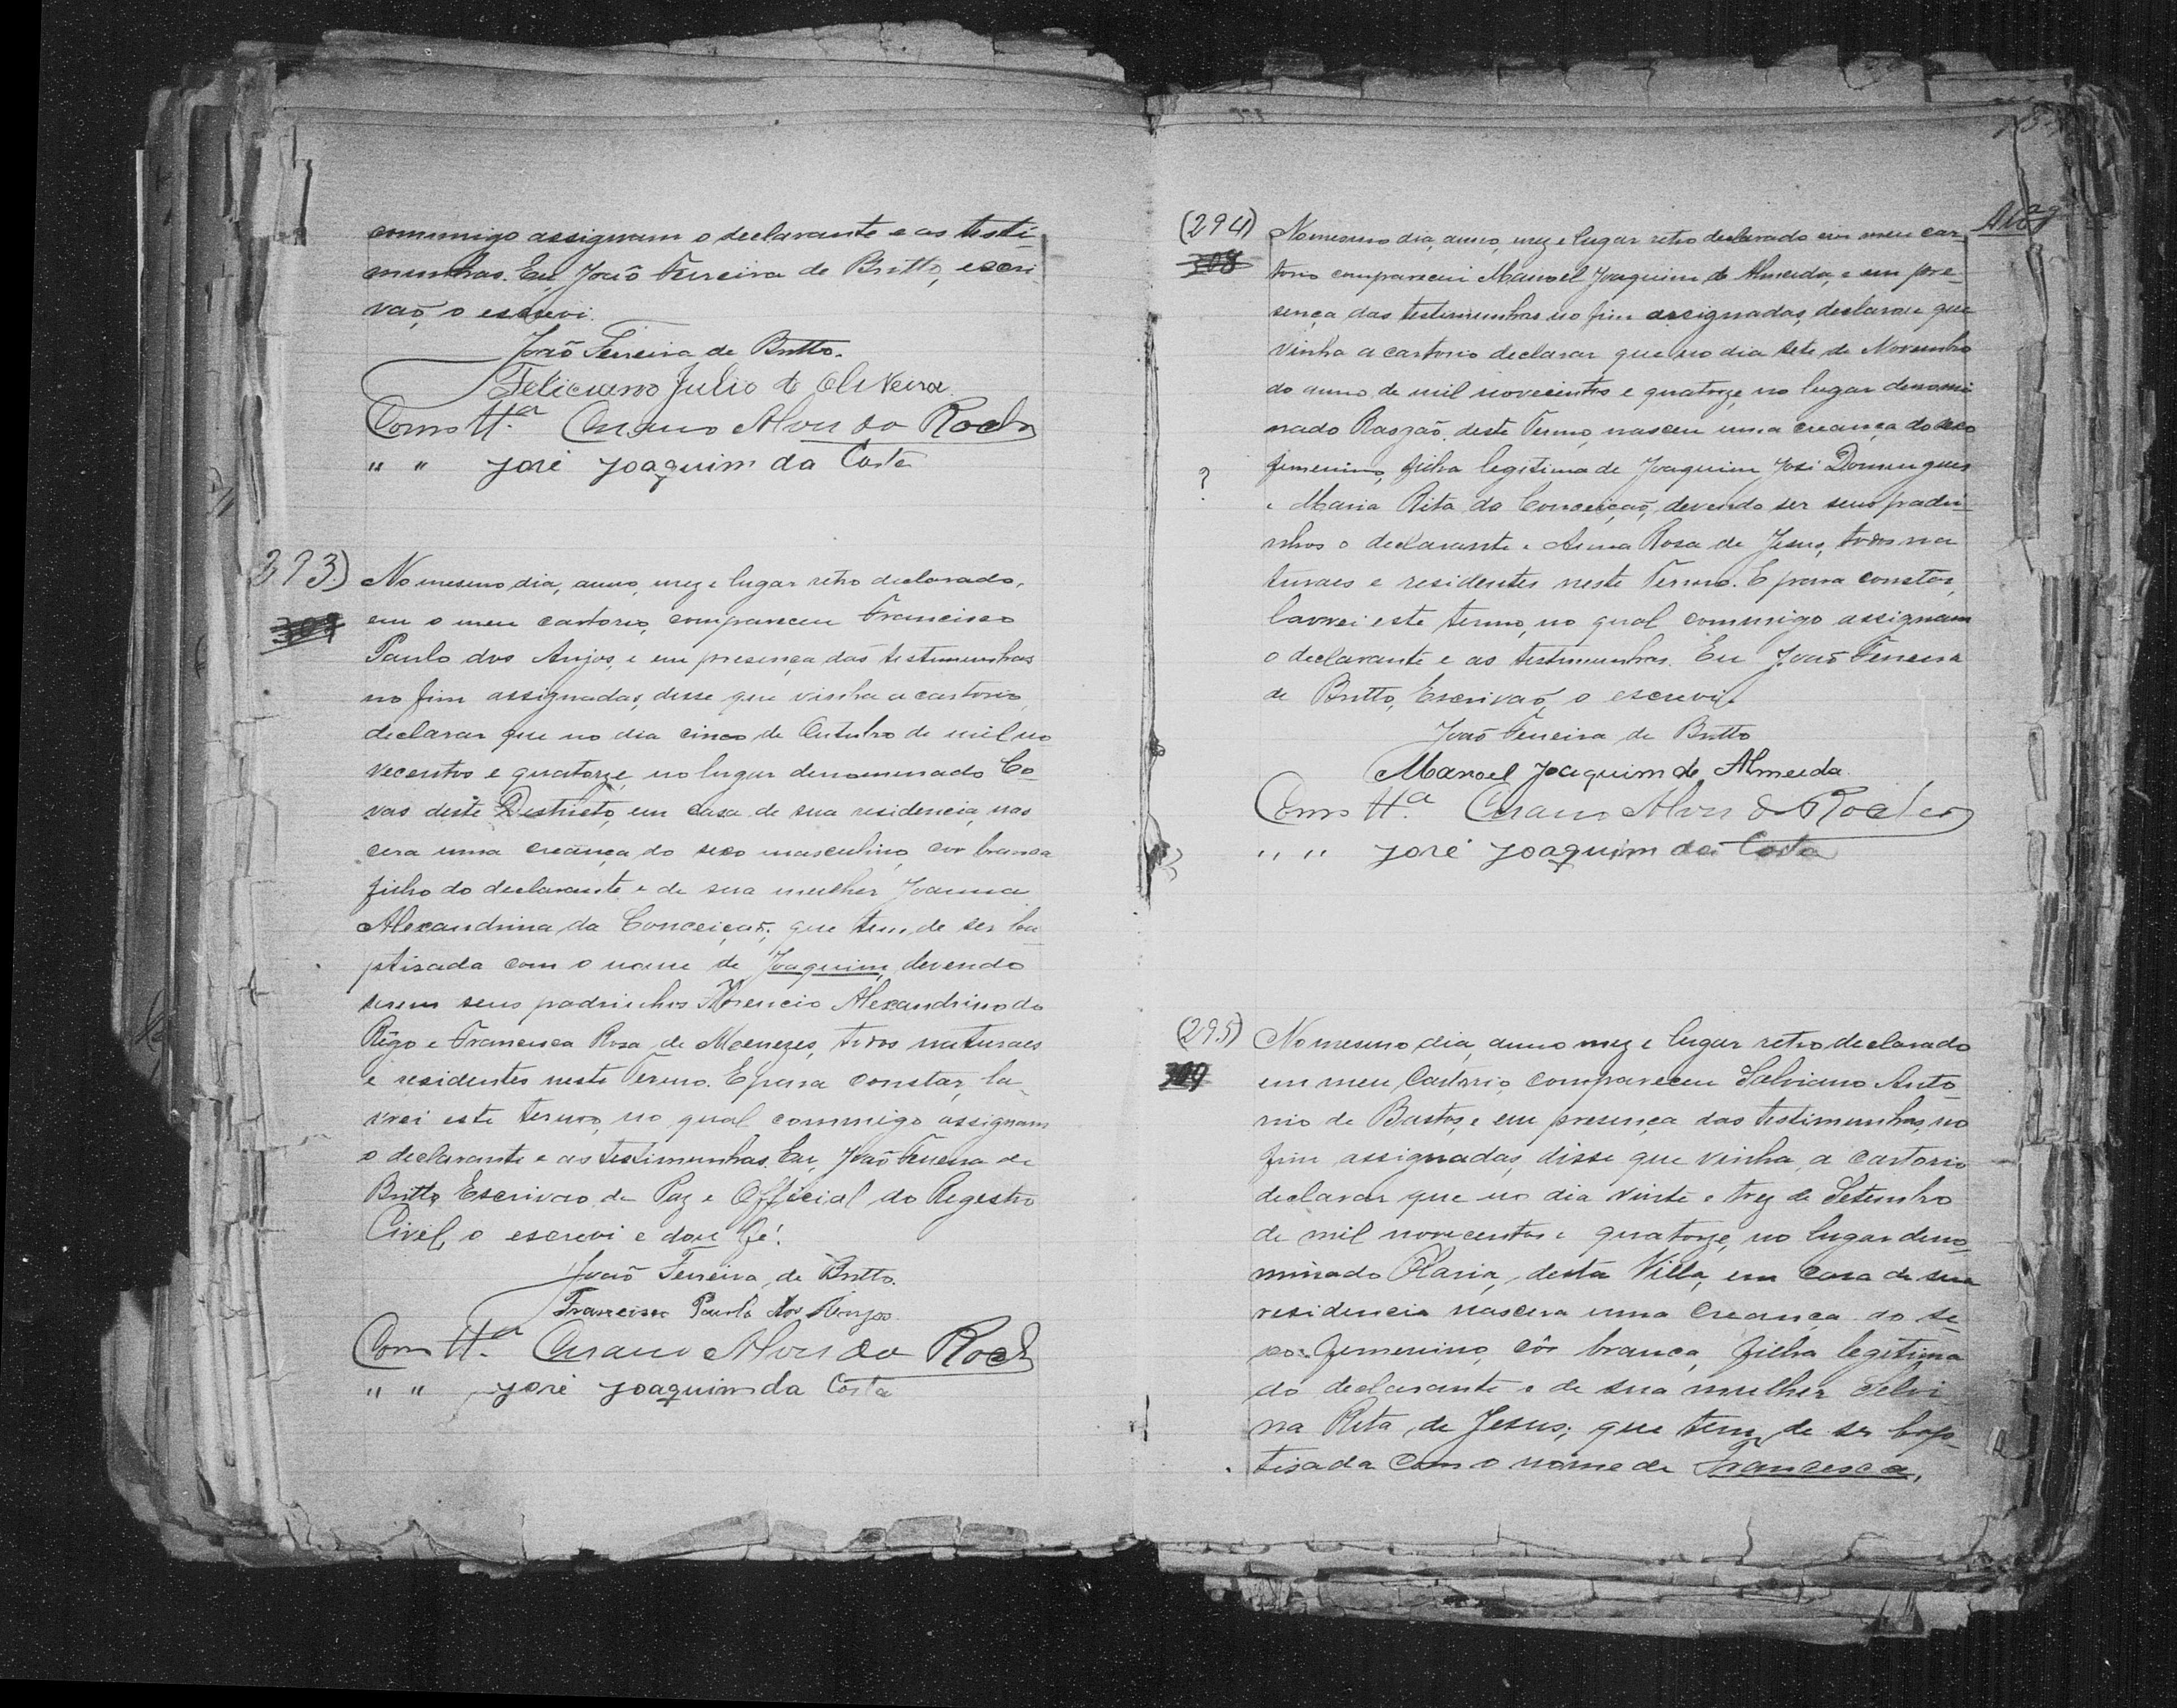 commigo assignam o declarante e as testi-
munhas. Eu, João Ferreira de Britto, escri
vaõ, o escrevi.
João Ferreira de Britto.
Feliciano Julio de Oliveira
Como tt.ª Alves da Rocha
" " José Joaquim da Costa
293)
No mesmo dia, anno, mez e lugar retro declarado,
em o meu cartorio, compareceu Francisco
Paulo dos Anjos, e em presença das testimunhas
no fim assignadas, disse que vinha a cartorio
declarar que no dia cinco de Outubro de mil no
vecentos e quatorze, no lugar denominado Co-
vas deste Districto, em casa de sua residencia, nas
cera uma creança do sexo masculino, cor branca
filho do declarante e de sua mulher Joanna
Alexandrina da Conceiçaõ, que tem de ser ba-
ptisada com o nome de Joaquim, devendo
serem seus padrinhos Alexandrino do
Rêgo e Francisca Rosa de Menezes, todos naturaes
e residentes neste Termo. E para constar, la-
vrei este termo, no qual commigo assignam
o declarante e as testimunhas. Eu, João Ferreira de
Britto, Escrivão de Paz e Official do Registro
Civel, o escrevi e dou fé.
João Ferreira de Britto.
Francisco Paulo dos Anjos
Como tt.ª Alves da Rocha
" " José Joaquim da Costa
(294)
308
No mesmo dia, anno, mez e lugar retro declarado em meu car-
torio compareceu Manoel Joaquim de Almeida, e em pre-
sença das testimunhas no fim assignadas, declarou que
vinha a cartorio declarar que no dia sete de Novembro
do anno de mil novecentos e quatorze, no lugar denomi
nado deste Termo, nasceu uma creança do sexo
?
femenino, filha legitima de Joaquim José Domingues
e Maria Rita da Conceiçaõ, devendo ser seus padri-
nhos o declarante e Anna Rosa de Jesus, todos na
turaes e residentes neste Termo. E para constar,
lavrei este termo, no qual commigo assignam
o declarante e as testimunhas. Eu João Ferreira
de Britto, Escrivaõ, o escrevi.
João Ferreira de Britto
Manoel Joaquim de Almeida.
Como tt.ª Alves da Rocha
" " José Joaquim da Costa
(295)
309
No mesmo dia, anno mez e lugar retro declarado
em meu Cartorio, compareceu Salviano Anto-
nio de Bastos, e em presença das testimunhas, no
fim assignadas, disse que vinha a cartorio
declarar que no dia vinte e trez de Setembro
de mil novecentos e quatorze, no lugar deno-
minado Olaria, desta Villa, em casa de sua
residencia nascera uma creança do se-
xo femenino, côr branca, filha legitima
do declarante e de sua mulher Selvi
na Rita de Jesus; que tem de ser bap-
tisada com o nome de Francisca,